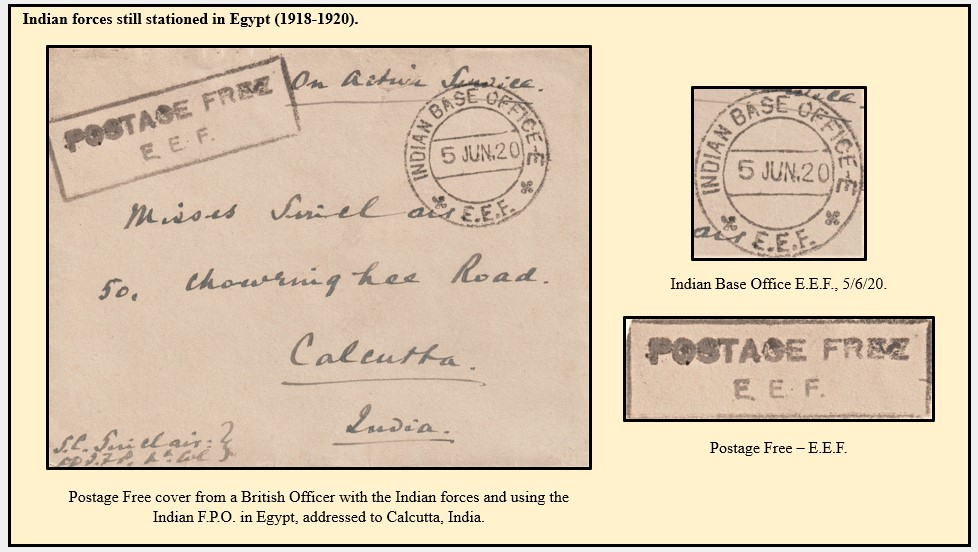 Indian forces still stationed in Egypt (1918-1920).
On Active Service.
POSTAGE FREE
E.E.F.
INDIAN BASE OFFICE-E
5 JUN.20
E.E.F.
Misses Sinclair
50, Chowringhee Road.
Calcutta.
India.
S.C. Sinclair
INDIAN BASE OFFICE-E
5 JUN.20
E.E.F.
Indian Base Office E.E.F., 5/6/20.
POSTAGE FREE
E. E. F.
Postage Free – E.E.F.
Postage Free cover from a British Officer with the Indian forces and using the
Indian F.P.O. in Egypt, addressed to Calcutta, India.